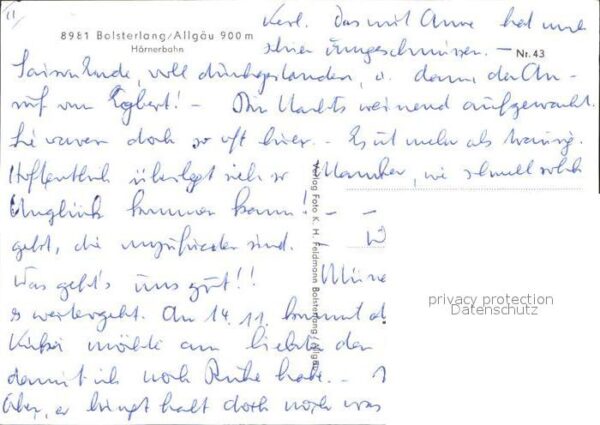 8981 Bolsterlang/Allgäu 900 m
Hörnerbahn
Nr. 43
Kerl. Das mit Anne hat uns
schier umgeschmissen. –
Saisonende, voll durchgestanden, u. dann der An-
ruf von Egbert! – Bin Nachts weinend aufgewacht.
Sie waren doch so oft hier. – Es ist mehr als traurig.
Hoffentlich überlegt sich so Mancher, wie schnell solch
Unglück kommen kann! – –
geht, die unzufrieden sind. – W
Was geht's uns gut!!
es weitergeht. Am 14.11. kommt d
möchte am liebsten den
damit ich noch Ruhe habe. –
Aber, er bringt halt doch noch was
Verlag Foto K. H. Feldmann Bolsterlang/Allgäu
privacy protection
Datenschutz